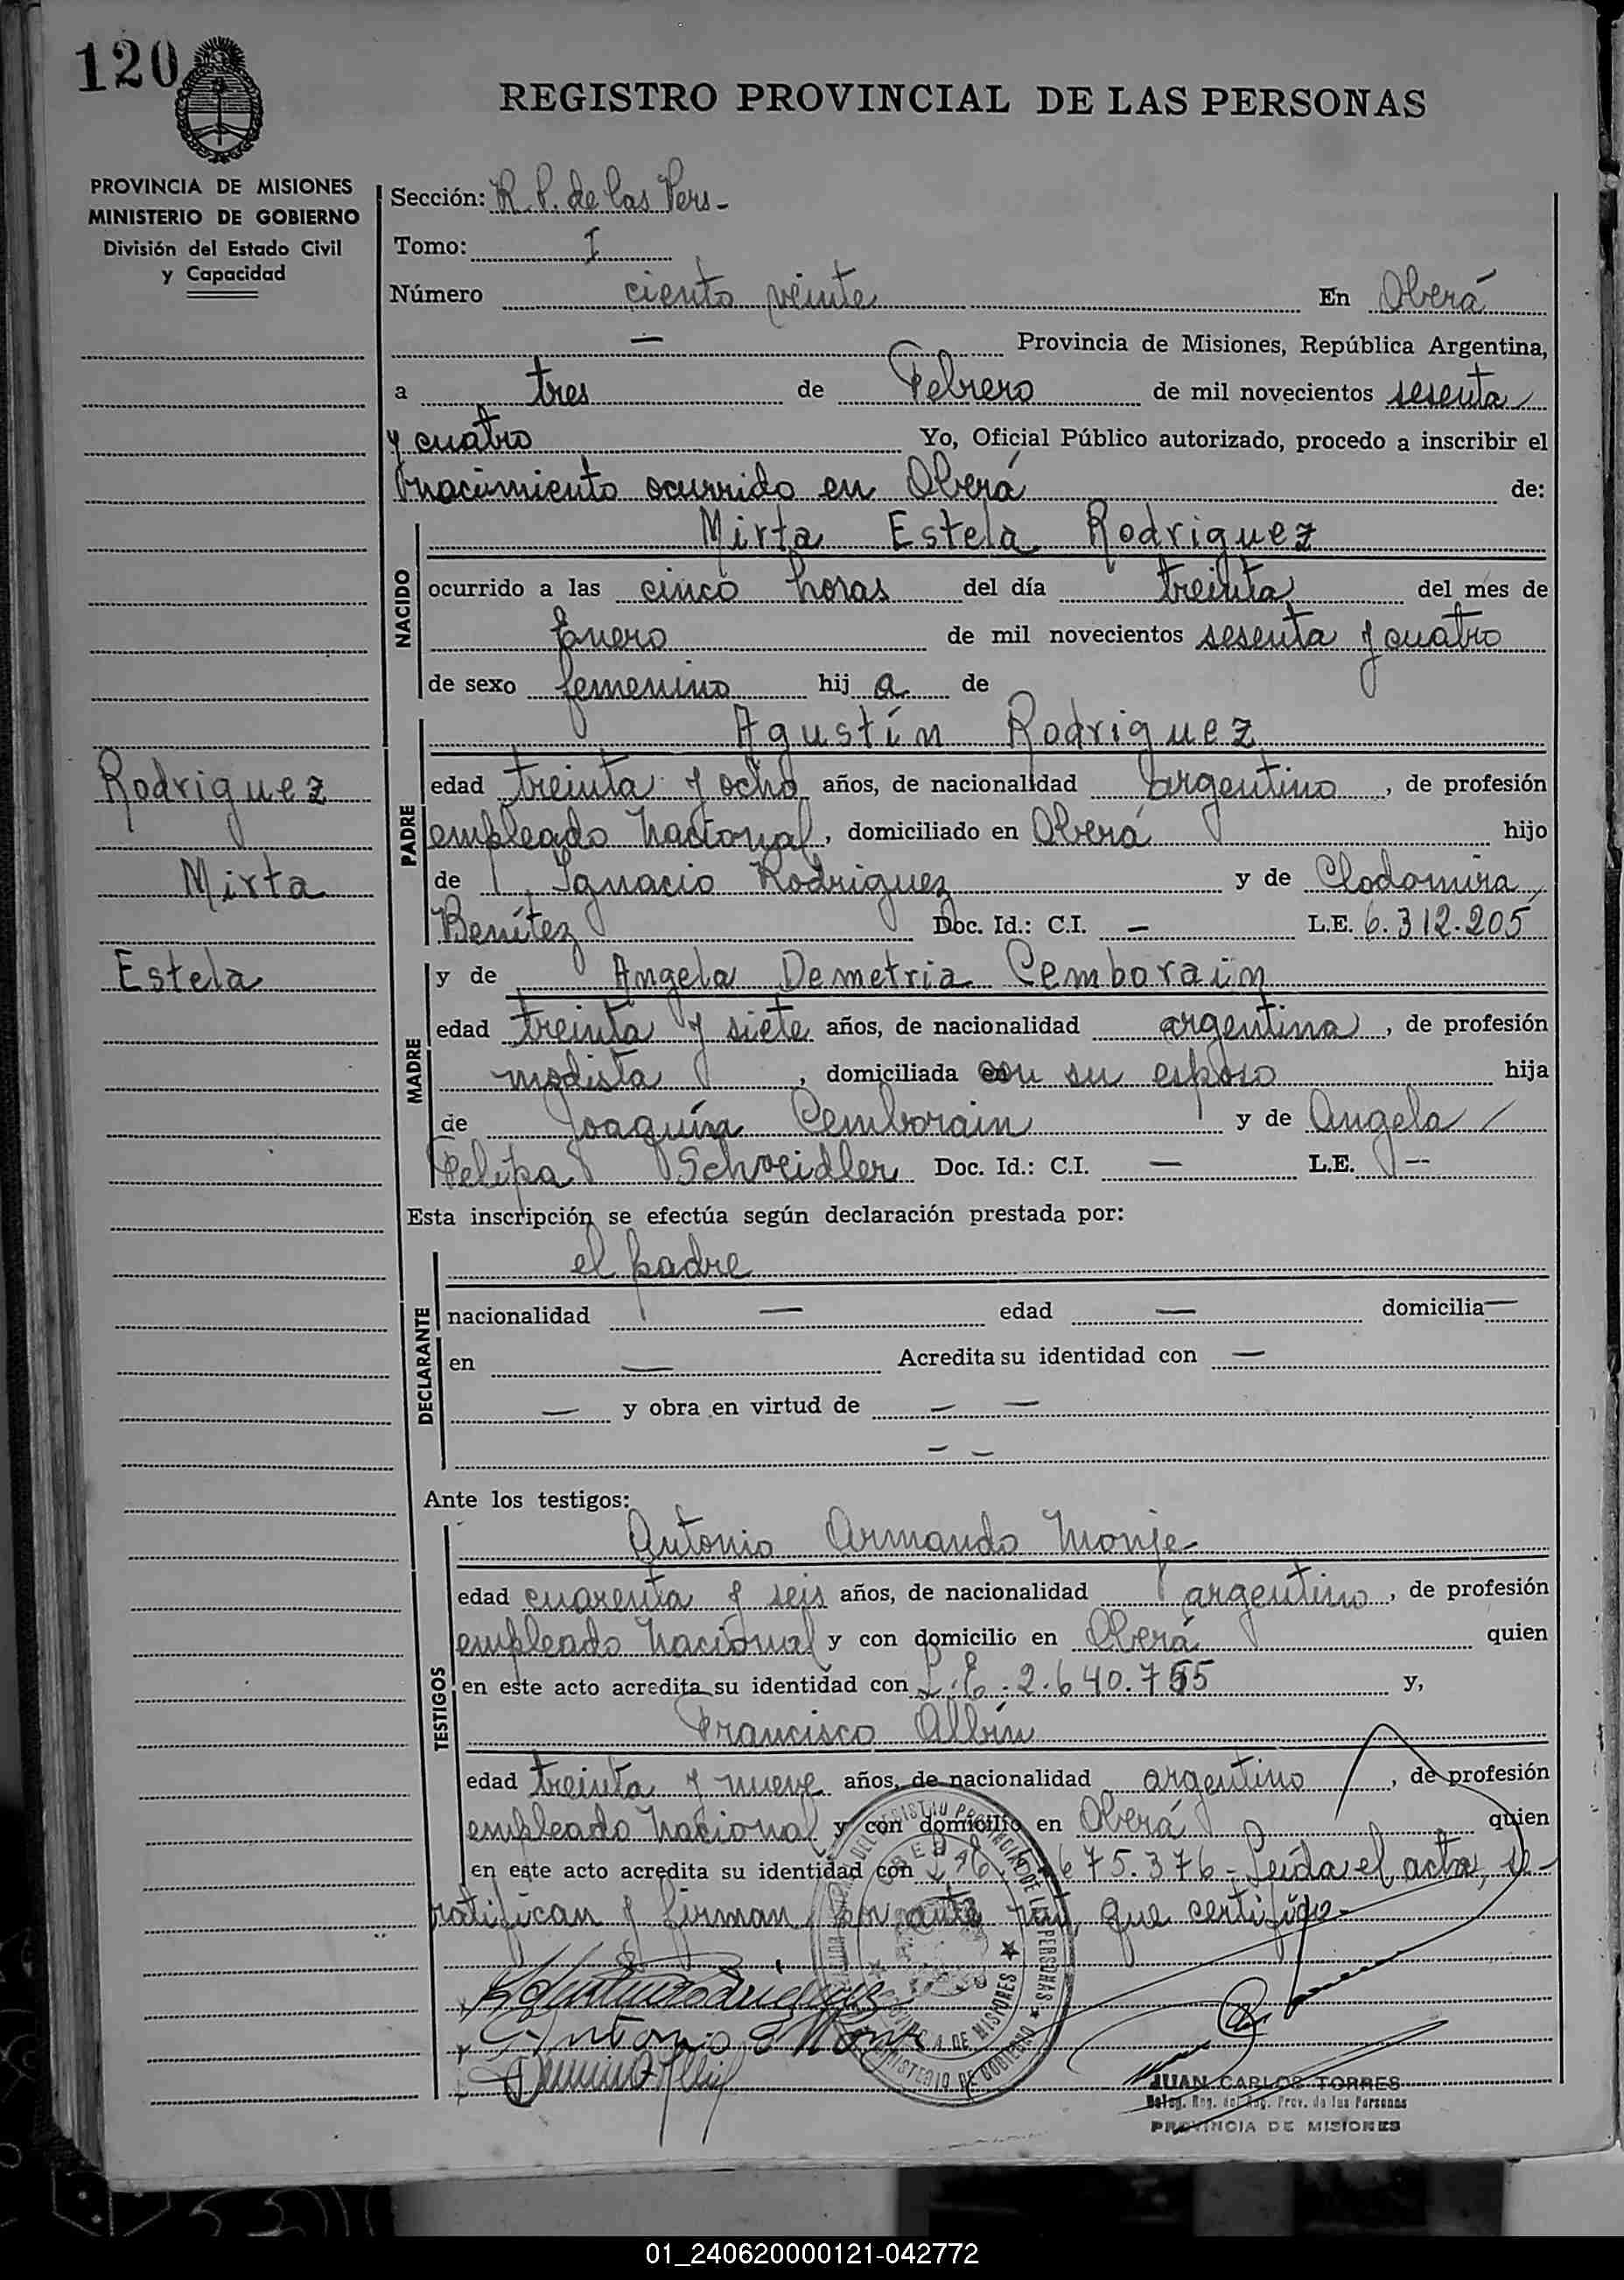 120
REGISTRO PROVINCIAL DE LAS PERSONAS
PROVINCIA DE MISIONES
MINISTERIO DE GOBIERNO
División del Estado Civil
y Capacidad
Sección: R. P. de las Pers-
Tomo: I
Número ciento veinte En Oberá
— Provincia de Misiones, República Argentina,
a tres de Febrero de mil novecientos sesenta
y cuatro Yo, Oficial Público autorizado, procedo a inscribir el
nacimiento ocurrido en Oberá de:
NACIDO
Mirta Estela Rodriguez
ocurrido a las cinco horas del día treinta del mes de
Enero de mil novecientos sesenta y cuatro
de sexo femenino hij a de
PADRE
Agustín Rodriguez
edad treinta y ocho años, de nacionalidad argentino, de profesión
empleado nacional, domiciliado en Oberá hijo
de Ignacio Rodriguez y de Clodomira
Benítez Doc. Id.: C.I. — L.E. 6.312.205
Rodriguez
Mirta
Estela
MADRE
y de Angela Demetria Cemborain
edad treinta y siete años, de nacionalidad argentina, de profesión
modista, domiciliada con su esposo hija
de Joaquín Cemborain y de Angela
Felipa Schweidler Doc. Id.: C.I. — L.E. --
Esta inscripción se efectúa según declaración prestada por:
DECLARANTE
el padre
nacionalidad — edad — domicilia —
en — Acredita su identidad con —
— y obra en virtud de — —
— —
Ante los testigos:
TESTIGOS
Antonio Armando Monje
edad cuarenta y seis años, de nacionalidad argentino, de profesión
empleado nacional y con domicilio en Oberá quien
en este acto acredita su identidad con L.E. 2.640.755 y,
Francisco Albin
edad treinta y nueve años, de nacionalidad argentino, de profesión
empleado nacional y con domicilio en Oberá quien
en este acto acredita su identidad con 675.376- Leída el acta, se
ratifican y firman, por ante mí, que certifico-
Agustin Rodriguez
Antonio A Monje
OBERA
PROVINCIA DE MISIONES
MINISTERIO DE GOBIERNO
JUAN CARLOS TORRES
Deleg. Reg. del Reg. Prov. de las Personas
PROVINCIA DE MISIONES
01_240620000121-042772